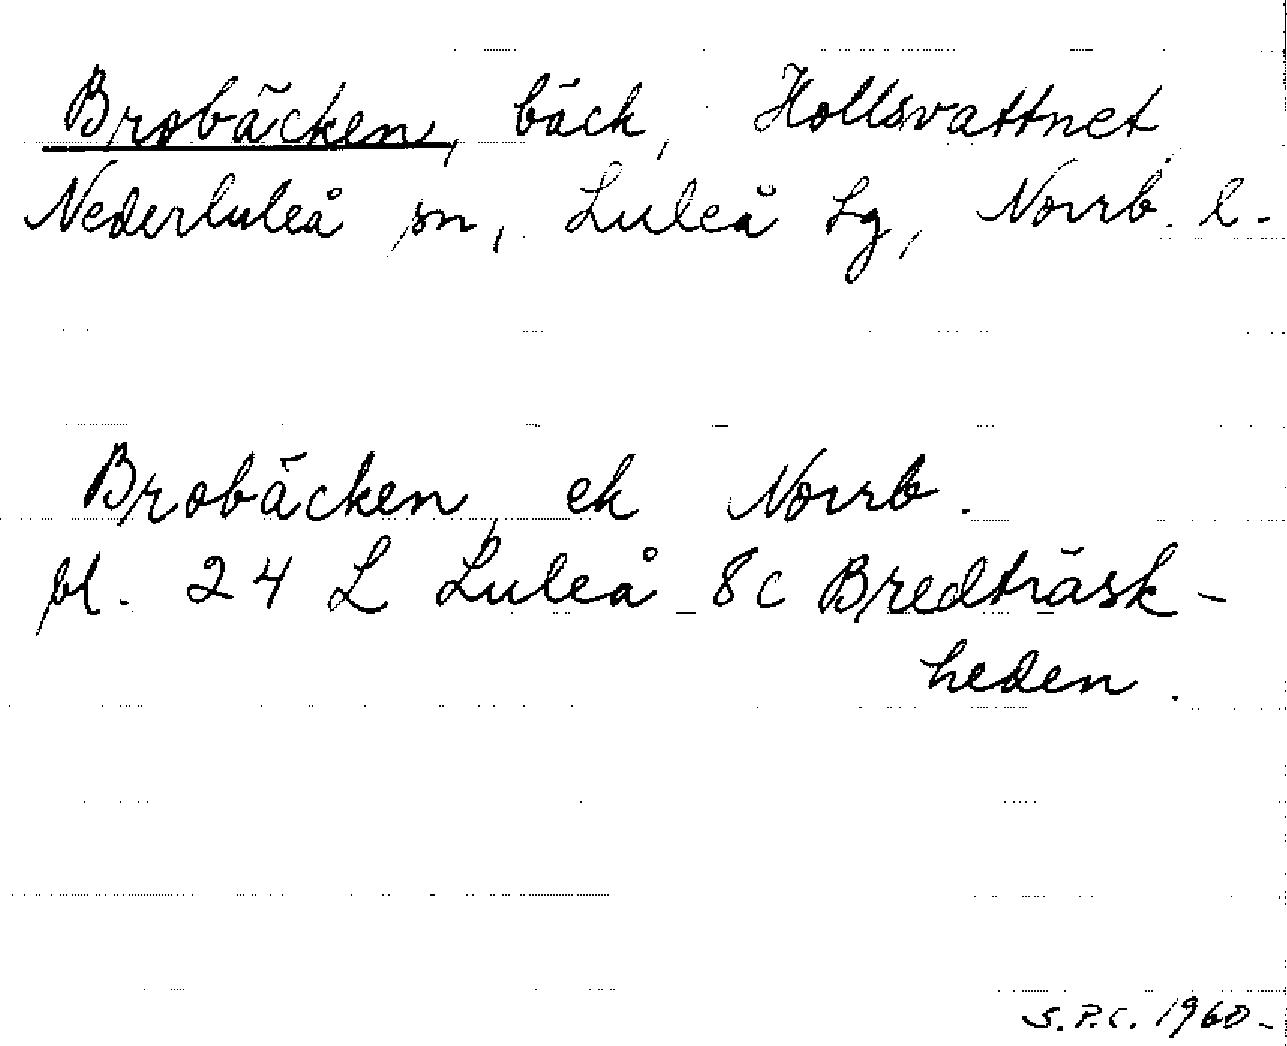 Brobäcken, bäck, Hollsvattnet,
Nederluleå sn, Luleå tg, Norrb. l.
Brobäcken, ek Norrb.
bl. 24 L Luleå 8c Bredträsk-
heden.
S.P.C. 1960